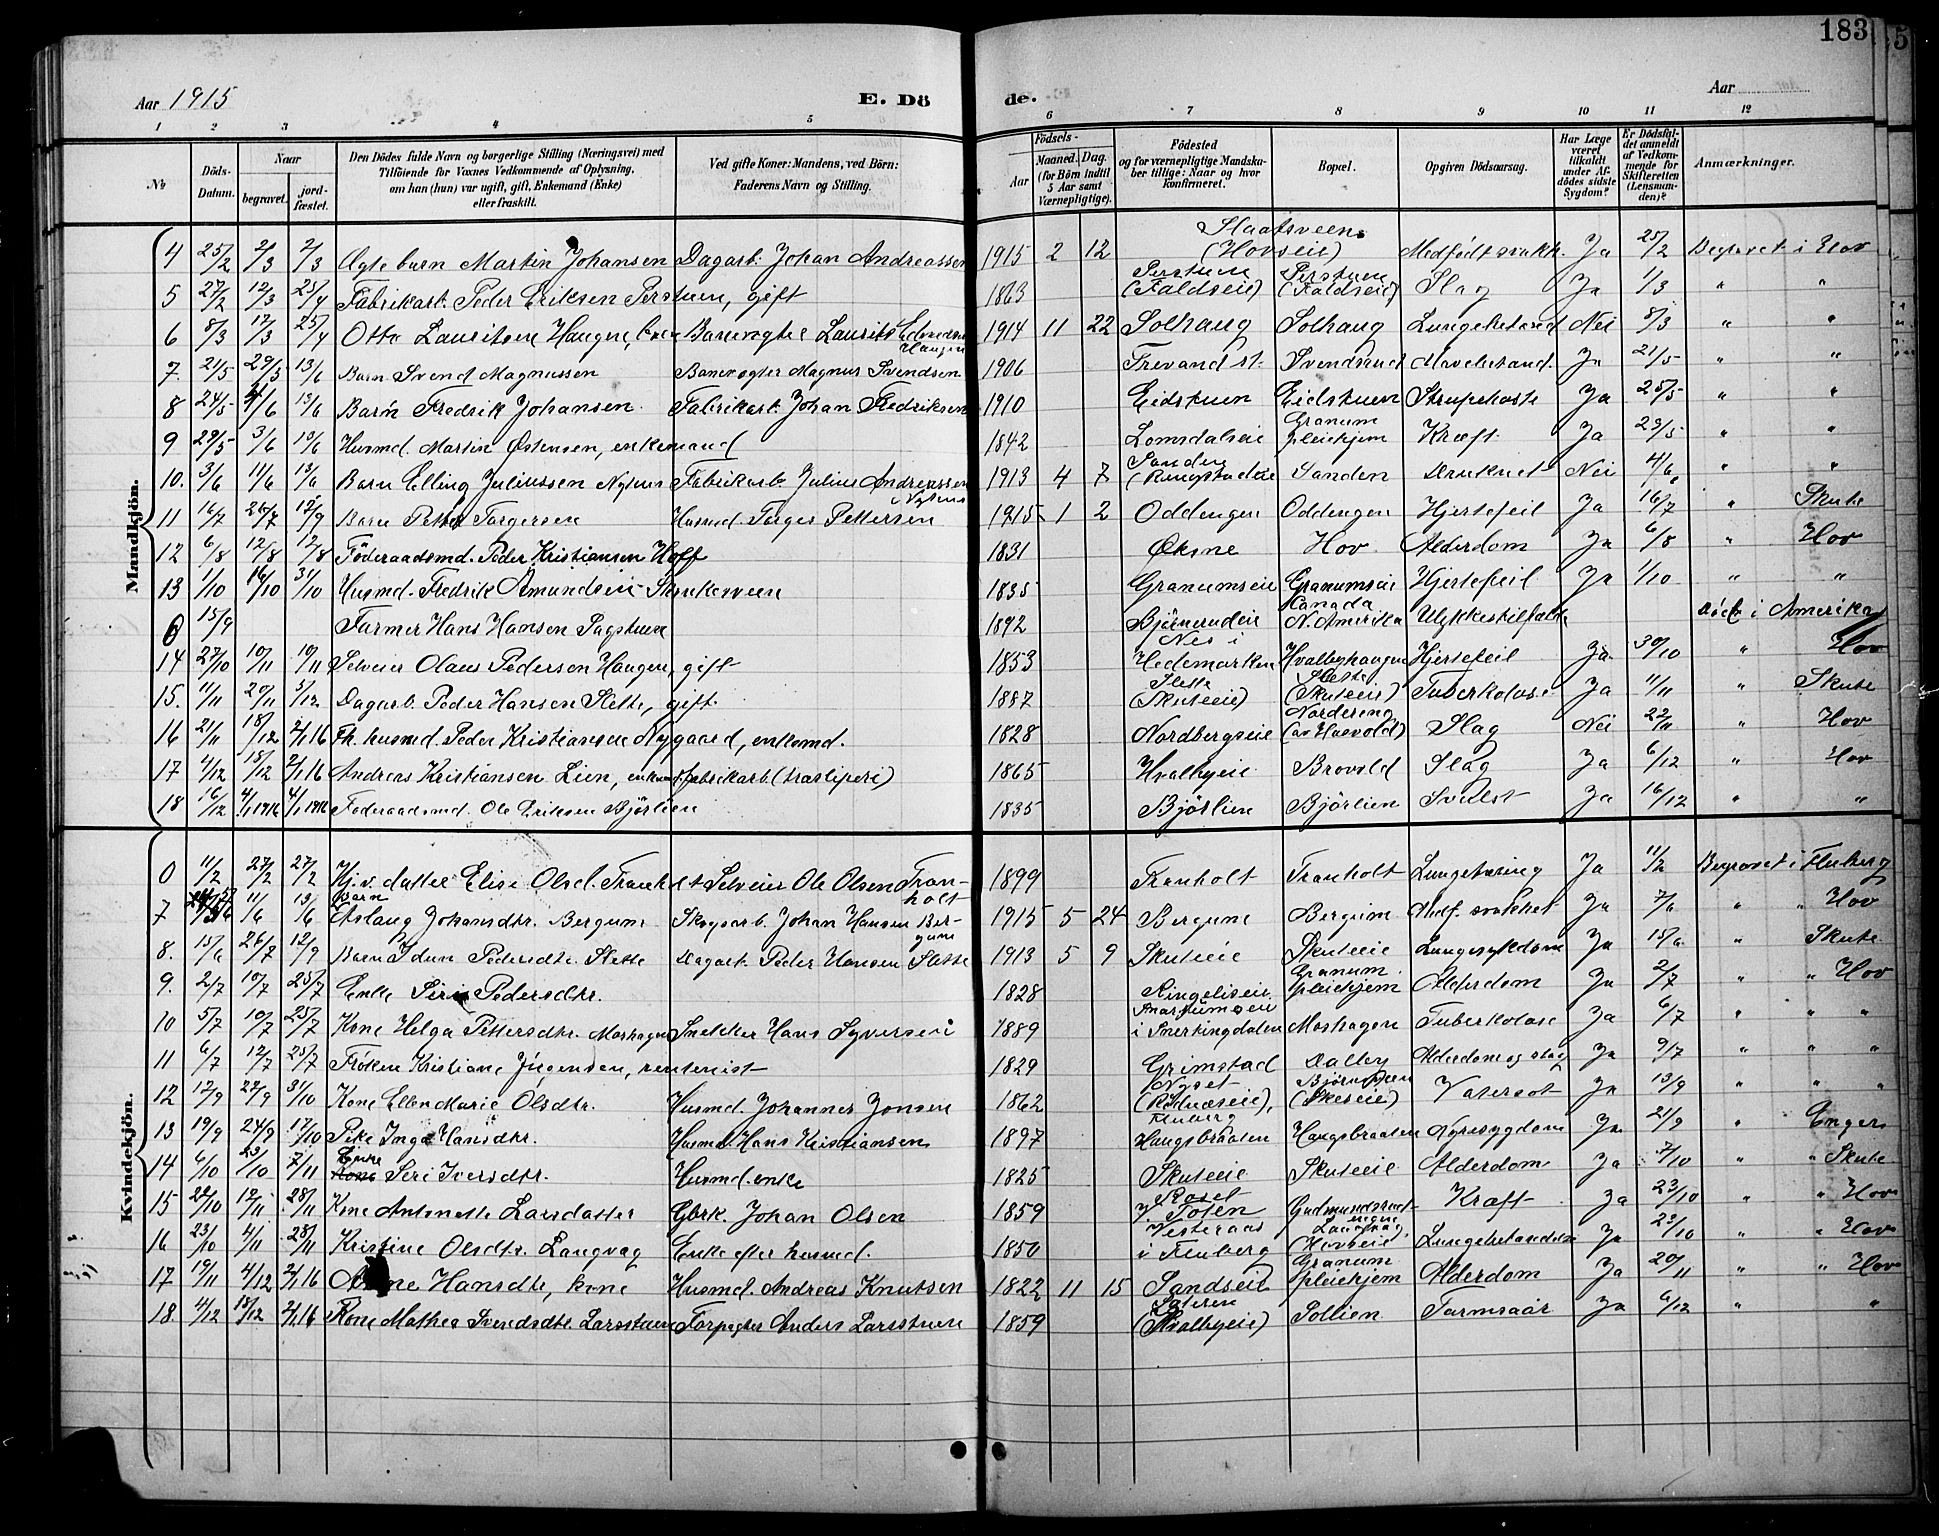 183
Aar 1915
E. Dö
de.
Aar
1 2 3 4 5 6 7 8 9 10 11 12
No
Döds-Datum.
Naar
begravet.
jord-fæstet.
Den Dödes fulde Navn og borgerlige Stilling (Næringsvei) med
Tilföiende for Voxnes Vedkommende af Oplysning,
om han (hun) var ugift, gift, Enkemand (Enke)
eller fraskilt.
Ved gifte Koner: Mandens, ved Börn:
Faderens Navn og Stilling.
Födsels-
Aar
Maaned. Dag.
(for Börn indtil
5 Aar samt
Værnepligtige).
Födested
og for værnepligtige Mandska-
ber tillige: Naar og hvor
konfirmeret.
Bopæl.
Opgiven Dödsaarsag.
Har Læge
været
tilkaldt
under Af-
dödes sidste
Sygdom?
Er Dödsfal-
det anmeldt
af Vedkom-
mende for
Skifteretten
(Lensman-
den)?
Anmærkninger.
Mandkjön.
4 25/2 2/3 2/3 Ægte barn Martin Johansen Dagarb. Johan Andreassen 1915 2 12 Slaatsveen (Hovseie) Medfödt svakh. Ja 25/2 Begravet i Hov
5 27/2 12/3 25/4 Fabrikarb. Peder Eriksen Perstuen, gift 1863 Perstuen (Faldseie) Perstuen (Faldseie) Slag Ja 1/3 " "
6 8/3 17/3 25/4 Otto Lauritsen Haugen, Banevogter Laurits Edvardsen Haugen 1914 11 22 Solhaug Solhaug Lungebetænd Nei 8/3 " "
7. 21/5 29/5 13/6 Barn Svend Magnussen Banevogter Magnus Svendsen 1906 Trevand st. Svendsrud Mavebetænd. Ja 21/5 " "
8 24/5 4/6 13/6 Barn Fredrik Johansen. Fabrikarb. Johan Fredriksen 1910 Eidstuen Eidstuen Strupehoste Ja 25/5 " "
9 29/5 3/6 13/6 Husmd. Martin Østensen, enkemand 1842 Lomsdalseie Granum pleiehjem Kræft. Ja 29/5 " "
10. 3/6 11/6 13/6 Barn Elling Juliussen Nyhus Fabrikarb. Julius Andreassen Nyhus 1913 4 7 Sanden (Ringstadeie Sanden Druknet Nei 4/6 " "
11 16/7 26/7 12/9 Barn Petter Torgersen Husmd. Torger Pettersen 1915 1 2 Oddengen Oddengen Hjertefeil Ja 16/7 " Skute
12 6/8 12/8 12/8 Föderaadsmd. Peder Kristiansen Hoff 1831 Øksne Hov Alderdom Ja 6/8 " Hov
13 1/10 16/10 31/10 Husmd. Fredrik Amundsen 1835 Granumseie Granumseie Hjertefeil Ja 1/10 " "
0 15/9 Farmer Hans Hansen 1892 Björnerudeie Canada N. Amerika Ulykkestilfælde död i Amerika
14 27/10 10/11 10/11 Selveier Olaus Pedersen Haugen, gift 1853 Nes i Hedemarken Hvalbyhaugen Hjertefeil Ja 30/10 " Hov
15. 11/11 20/11 5/12 Dagarb. Peder Hansen Slette, gift. 1887 Slette (Skuteeie) Slette (Skuteeie) Tuberkolose Ja 11/11 " Skute
16 21/11 18/12 2/1 16 Fh. husmd. Peder Kristiansen Nygaard, enkemd. 1828 Nordbergseie Nordering Slag Nei 22/11 " Hov
17 4/12 18/12 2/1 16 Andreas Kristiansen Lien, enkemd. fabrikarb. (træsliperi) 1865 Hvalbyeie Brovold Slag Ja 6/12 " Hov
18 16/12 4/1 1916 4/1 1916 Föderaadsmd. Ole Eriksen Björlien 1835 Björlien Björlien Svulst Ja 16/12 " "
Kvindekjön.
0 11/2 27/2 27/2 Hj.v. datter Elise Olsd. Tranholt Selveier Ole Olsen Tranholt 1899 Tranholt Tranholt Lungetæring Ja 11/2 Begravet i Fluberg
7 11/6 13/6 Barn Aslaug Johansdtr. Bergum Skogsarb. Johan Hansen Bergum 1915 5 24 Bergum Bergum Medf. svakhet Ja 7/6 " " Hov
8. 15/6 26/7 12/9 Barn Idun Pedersdtr. Slette Dagarb. Peder Hansen Slette 1913 5 9 Skuteeie Skuteeie Lungesykdom Ja 15/6 " Skute
9. 2/7 10/7 25/7 Enke Siri Pedersdtr. 1828 Ringeliseie Granum pleiehjem Alderdom Ja 2/7 " " Hov
10 5/7 10/7 25/7 Kone Helga Pettersdtr. Moshagen Snekker Hans Syversen 1889 i Snertingdalen Moshagen Tuberkolose Ja 6/7 " " "
11 6/7 12/7 25/7 Frøken Kristiane Jürgensen, rentenist 1829 Grimstad Dalby Alderdom og slag Ja 9/7 " " "
12 12/9 22/9 31/10 Kone Ellen Marie Olsdtr. Husmd. Johannes Jonsen 1862 Nyset Fluberg Vatersot Ja 13/9 " " "
13 19/9 24/9 17/10 Pike Inga Hansdtr. Husmd. Hans Kristiansen 1897 Haugsbraaten Haugsbraaten Nyresygdom Ja 21/9 " Enger
14 6/10 23/10 7/11 Enke Siri Iversdtr. Husmd. enke 1825 Skuteeie Skuteeie Alderdom Ja 7/10 " " Skute
15 22/10 12/11 28/11 Kone Antonette Larsdatter Gbrk. Johan Olsen 1859 V. Toten Kræft Ja 23/10 " " Hov
16 23/10 4/11 28/11 Kristine Olsdtr. Langvag Enke efter husmd. 1850 Vesteraas i Fluberg Ja 23/10 " " Hov
17 19/11 4/12 2/1 16 Anne Hansdtr, kone Husmd. Andreas Knutsen 1822 11 15 Sandseie Granum pleiehjem Alderdom Ja 20/11 " " Hov
18 4/12 18/12 2/1 16 Kone Mathea Svendsdtr. Larsstuen Forpagter Anders Larsstuen 1859 (Hvalbyeie) Sollien Tarmsaar Ja 6/12 " "